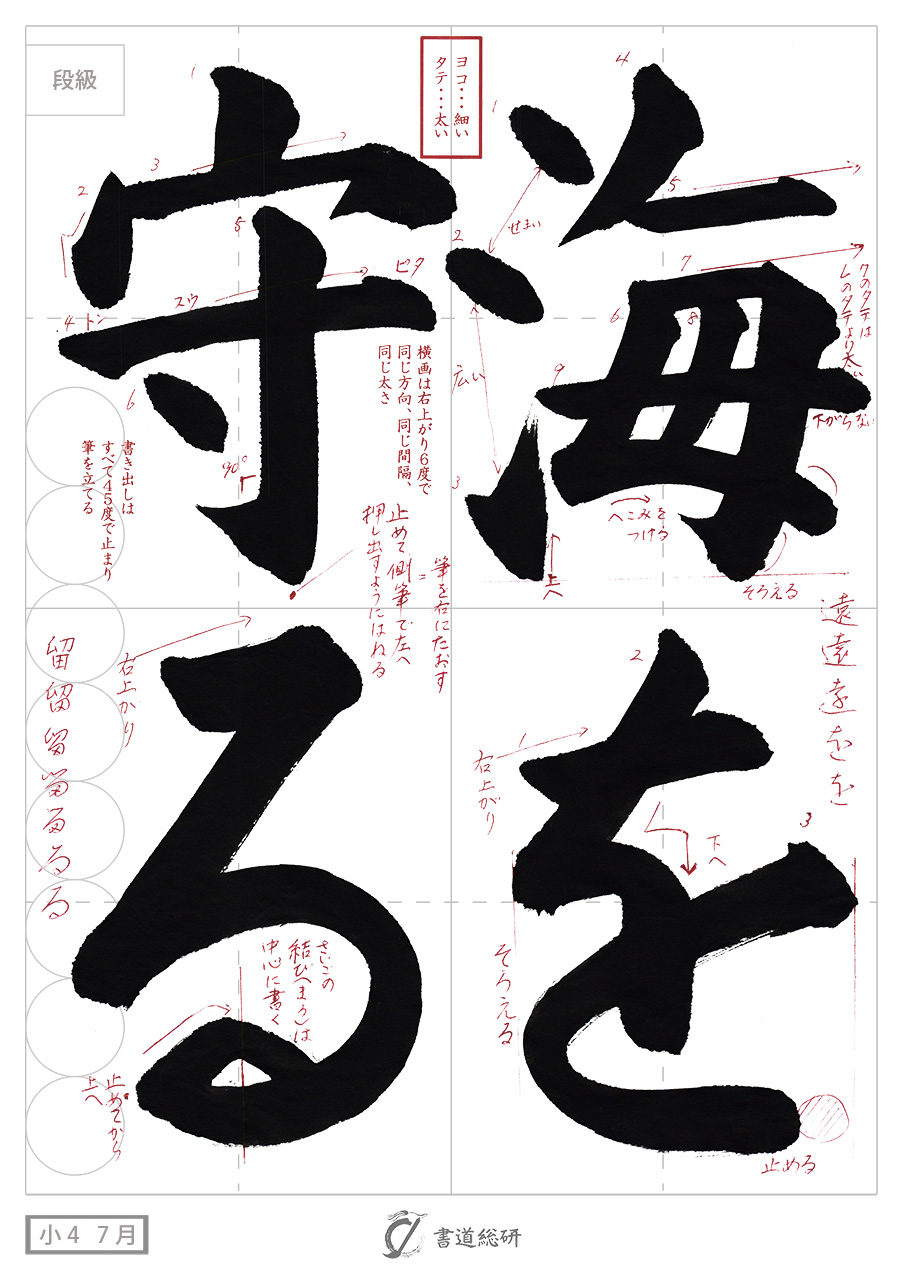 海を
守る
段級
ヨコ・・・細い
タテ・・・太い
1
2
3
4
5
6
7
8
9
せまい
広い
7のタテは
6のタテより太い
下がらない
へこみを
つける
上へ
そろえる
1
2
3
4
5
6
トン
スウ
ピタ
90°
横画は右上がり6度で
同じ方向、同じ間隔、
同じ太さ
書き出しは
すべて45度で止まり
筆を立てる
筆を右にたおす
=
止めて側筆で左へ
押し出すようにはねる
遠遠遠をを
1
2
3
右上がり
下へ
そろえる
止める
留留留留るるる
右上がり
さいごの
結び(まる)は
中心に書く
止めてから
上へ
小4 7月
書道総研